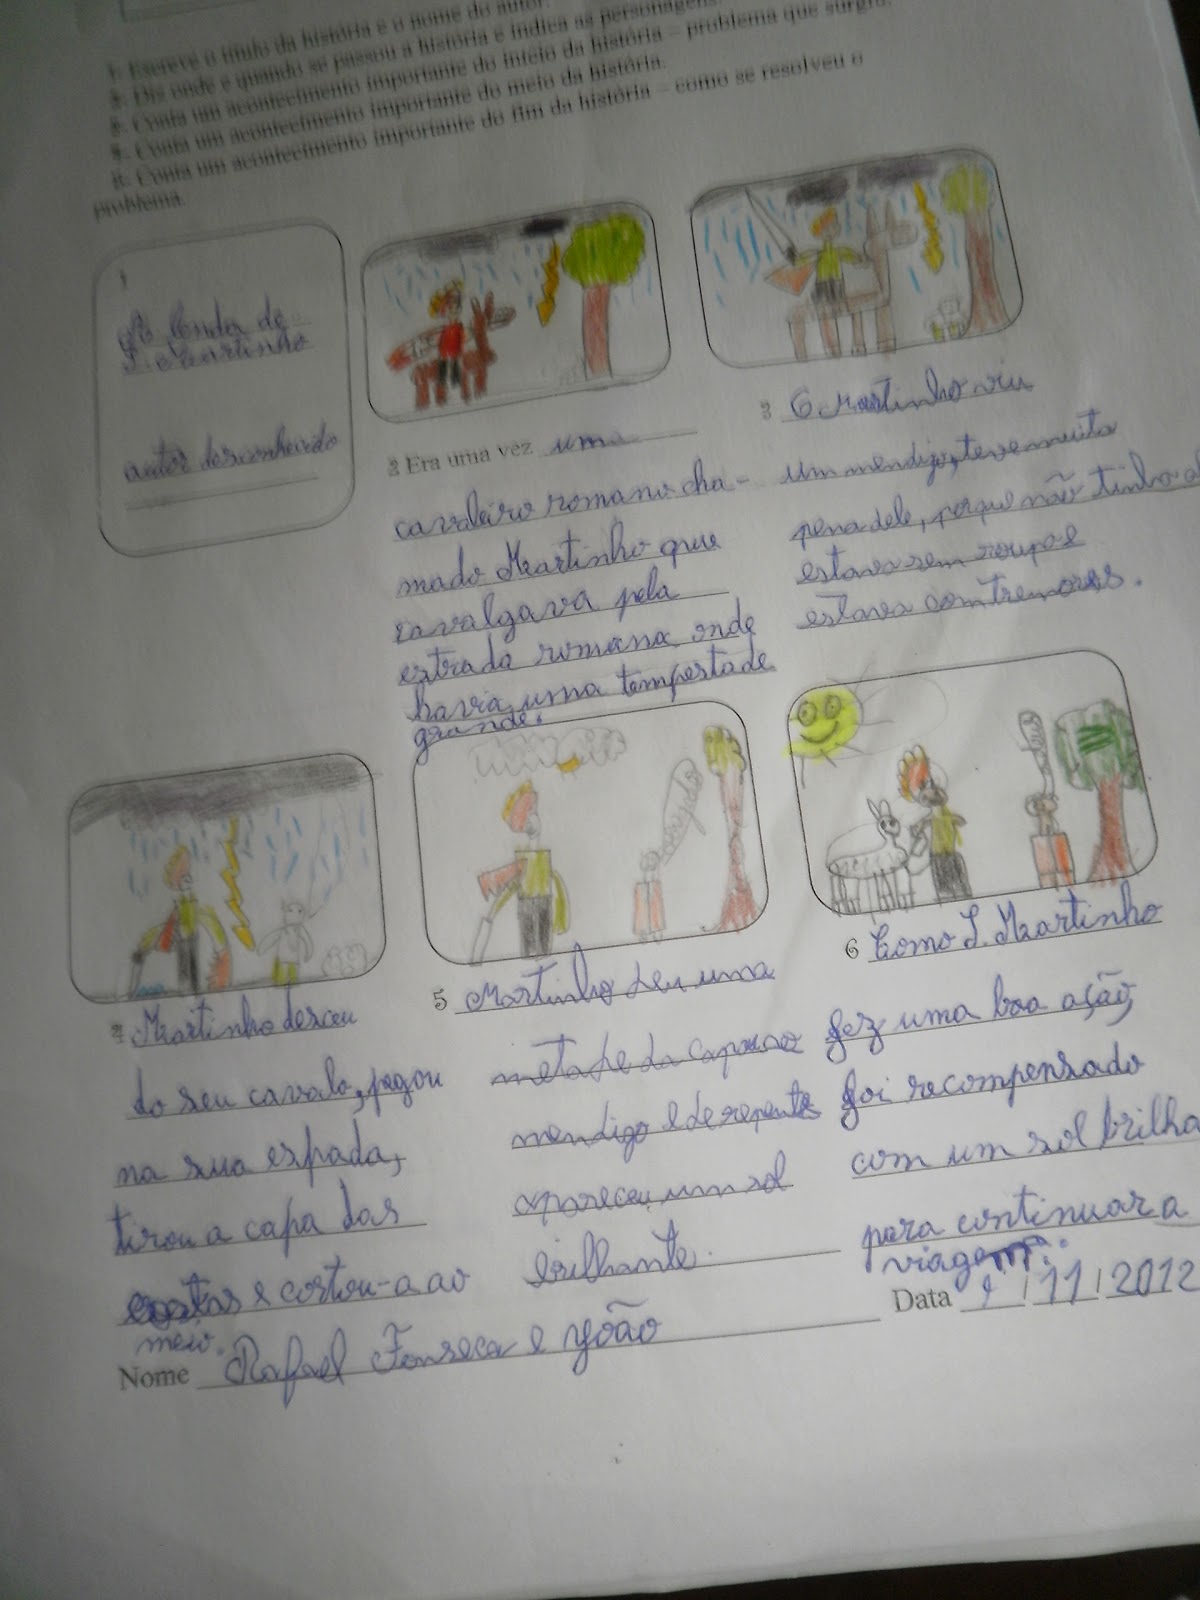 1- Escreve o título da história e o nome do autor.
2- Diz onde e quando se passou a história e indica as personagens.
Conta um acontecimento importante do início da história – problema que surgiu.
Conta um acontecimento importante do meio da história.
Conta um acontecimento importante do fim da história – como se resolveu o
problema.
1
A lenda de
S. Martinho
autor desconhecido
2 Era uma vez uma
cavaleiro romano cha-
mado Martinho que
cavalgava pela
estrada romana onde
havia uma tempestade
grande.
3 O Martinho viu
um mendigo, teve muita
pena dele, porque não tinha
estava sem roupa e
estava com tremores.
4 Martinho desceu
do seu cavalo, pegou
na sua espada,
tirou a capa das
costas e cortou-a ao
meio.
5 Martinho deu uma
metade da capa ao
mendigo e de repente
apareceu um sol
brilhante.
6 Como S. Martinho
fez uma boa ação,
foi recompensado
com um sol brilha
para continuar a
viagem.
Nome Rafael Fonseca e João
Data /11/2012